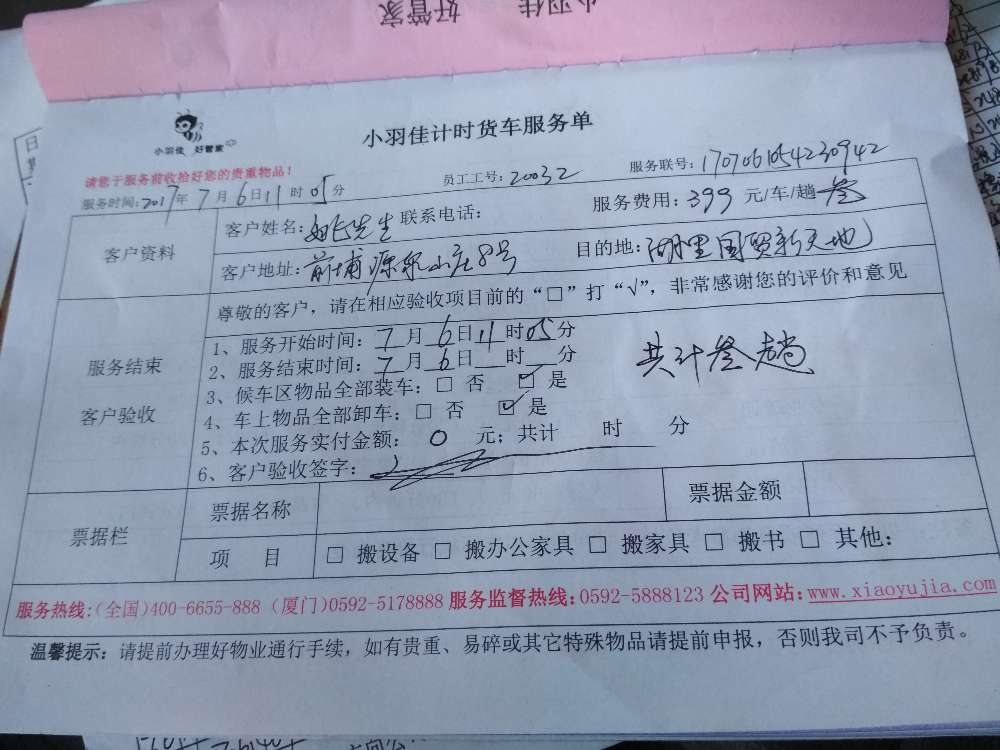 小羽佳 好管家
小羽佳 好管家
小羽佳计时货车服务单
请您于服务前收拾好您的贵重物品!
员工工号:20032
服务联号:170706105423094 2
服务时间:2017年7月6日11时05分
客户资料
客户姓名:姚先生 联系电话:
服务费用:399 元/车/趟 叁
客户地址:前埔源泉山庄8号
目的地:湖里国贸新天地
服务结束
客户验收
尊敬的客户,请在相应验收项目前的“□”打“√”,非常感谢您的评价和意见
1、服务开始时间:7月6日11时05分
2、服务结束时间:7月6日__时__分
共计叁趟
3、候车区物品全部装车:□ 否 ☑ 是
4、车上物品全部卸车:□ 否 ☑ 是
5、本次服务实付金额: 0 元;共计 时 分
6、客户验收签字:
票据栏
票据名称
票据金额
项 目
□ 搬设备 □ 搬办公家具 □ 搬家具 □ 搬书 □ 其他:
服务热线:(全国)400-6655-888 (厦门)0592-5178888 服务监督热线:0592-5888123 公司网站:www.xiaoyujia.com
温馨提示:请提前办理好物业通行手续,如有贵重、易碎或其它特殊物品请提前申报,否则我司不予负责。